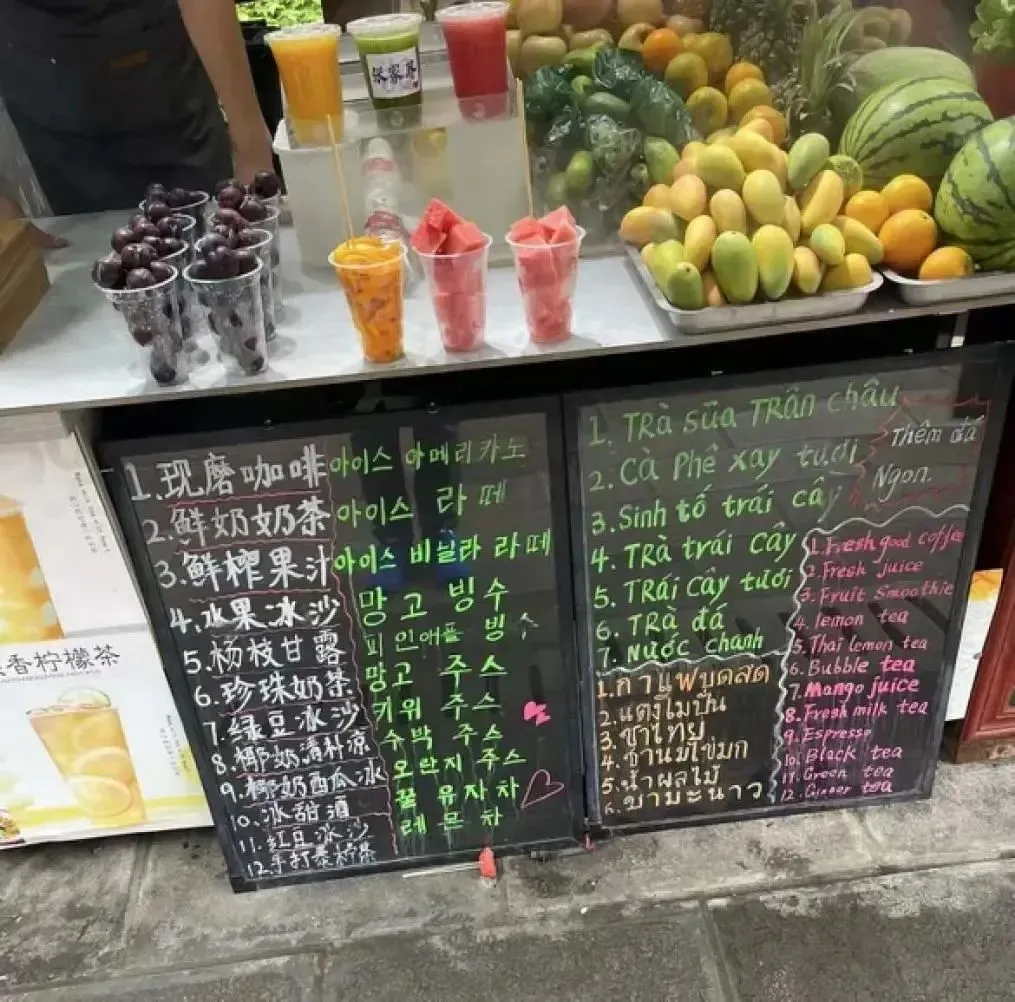 张家界
1.现磨咖啡
2.鲜奶奶茶
3.鲜榨果汁
4.水果冰沙
5.杨枝甘露
6.珍珠奶茶
7.绿豆冰沙
8.椰奶清补凉
9.椰奶西瓜冰
10.冰甜酒
11.红豆冰沙
12.手打柠檬茶
아이스 아메리카노
아이스 라떼
아이스 비닐라 라떼
망고 빙수
피인애플 빙수
망고 주스
키위 주스
수박 주스
오란지 주스
꿀 유자차
레몬차
1. TRà sữa TRân châu
2. Cà Phê xay tươi
3. Sinh tố trái cây
4. TRà trái cây
5. TRái cây tươi
6. TRà đá
7. Nước chanh
Thêm đá
Ngon.
1. Fresh good coffee
2. Fresh juice
3. Fruit Smoothie
4. lemon tea
5. Thai lemon tea
6. Bubble tea
7. Mango juice
8. Fresh milk tea
9. Espresso
10. Black tea
11. Green tea
12. Ginger tea
1. กาแฟบูดสด
2. แตงโมปั่น
3. ชาไทย
4. ชานมไข่มุก
5. น้ำผลไม้
6. ชามะนาว
香柠檬茶